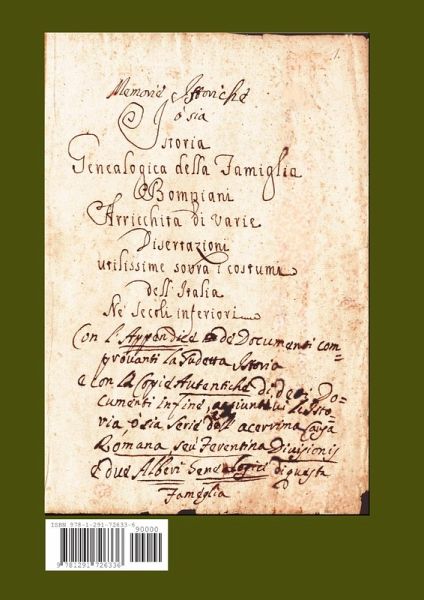 1.
Memorie Istoriche
o sia
Istoria
Genealogica della Famiglia
Bompiani
Arricchita di varie
Disertazioni
utilissime sovra i costumi
dell'Italia
Ne' Secoli inferiori
Con l'Appendice de Documenti com=
provanti la sudetta Istoria
e con le Copie Autentiche di detti Do=
cumenti infine, aggiuntavi l'Isto
ria o sia Serie dell' acerrima Causa
Romana seu Farentina Divisionis
e due Alberi Genealogici di questa
Famiglia
ISBN 978-1-291-72633-6
90000
9 781291 726336